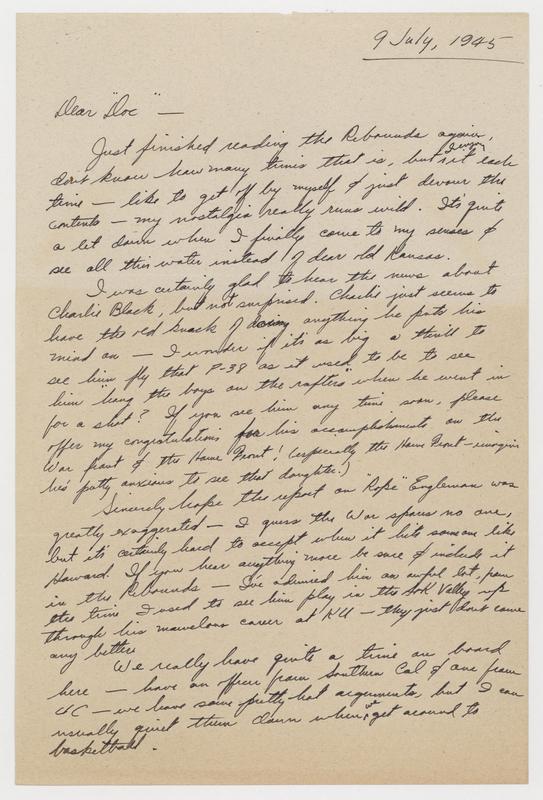 9 July, 1945
Dear "Doc" —
Just finished reading the Rebounds again,
don't know how many times that is, but I enjoy it each
time — like to get off by myself & just devour the
contents — my nostalgia really runs wild. It's quite
a let down when I finally come to my senses &
see all this water instead of dear old Kansas.
I was certainly glad to hear the news about
Charlie Black, but not surprised. Charlie just seems to
have the old knack of doing anything he puts his
mind on — I wonder if it's as big a thrill to
see him fly that P-38 as it used to be to see
him "hang the boys on the rafters" when he went in
for a shot? If you see him any time soon, please
offer my congratulations for his accomplishments on the
War front & the Home Front! (especially the Home Front — imagine
he's pretty anxious to see that daughter.)
Sincerely hope the report on "Rope" Engleman was
greatly exaggerated — I guess the War spares no one,
but it's certainly hard to accept when it hits someone like
Howard. If you hear anything more be sure & include it
in the Rebounds — I've admired him an awful lot, from
the time I used to see him play in the Ark Valley up
through his marvelous career at KU — they just don't come
any better
We really have quite a time on board
here — have an officer from Southern Cal & one from
UC — we have some pretty hot arguments, but I can
usually quiet them down when we get around to
basketball.